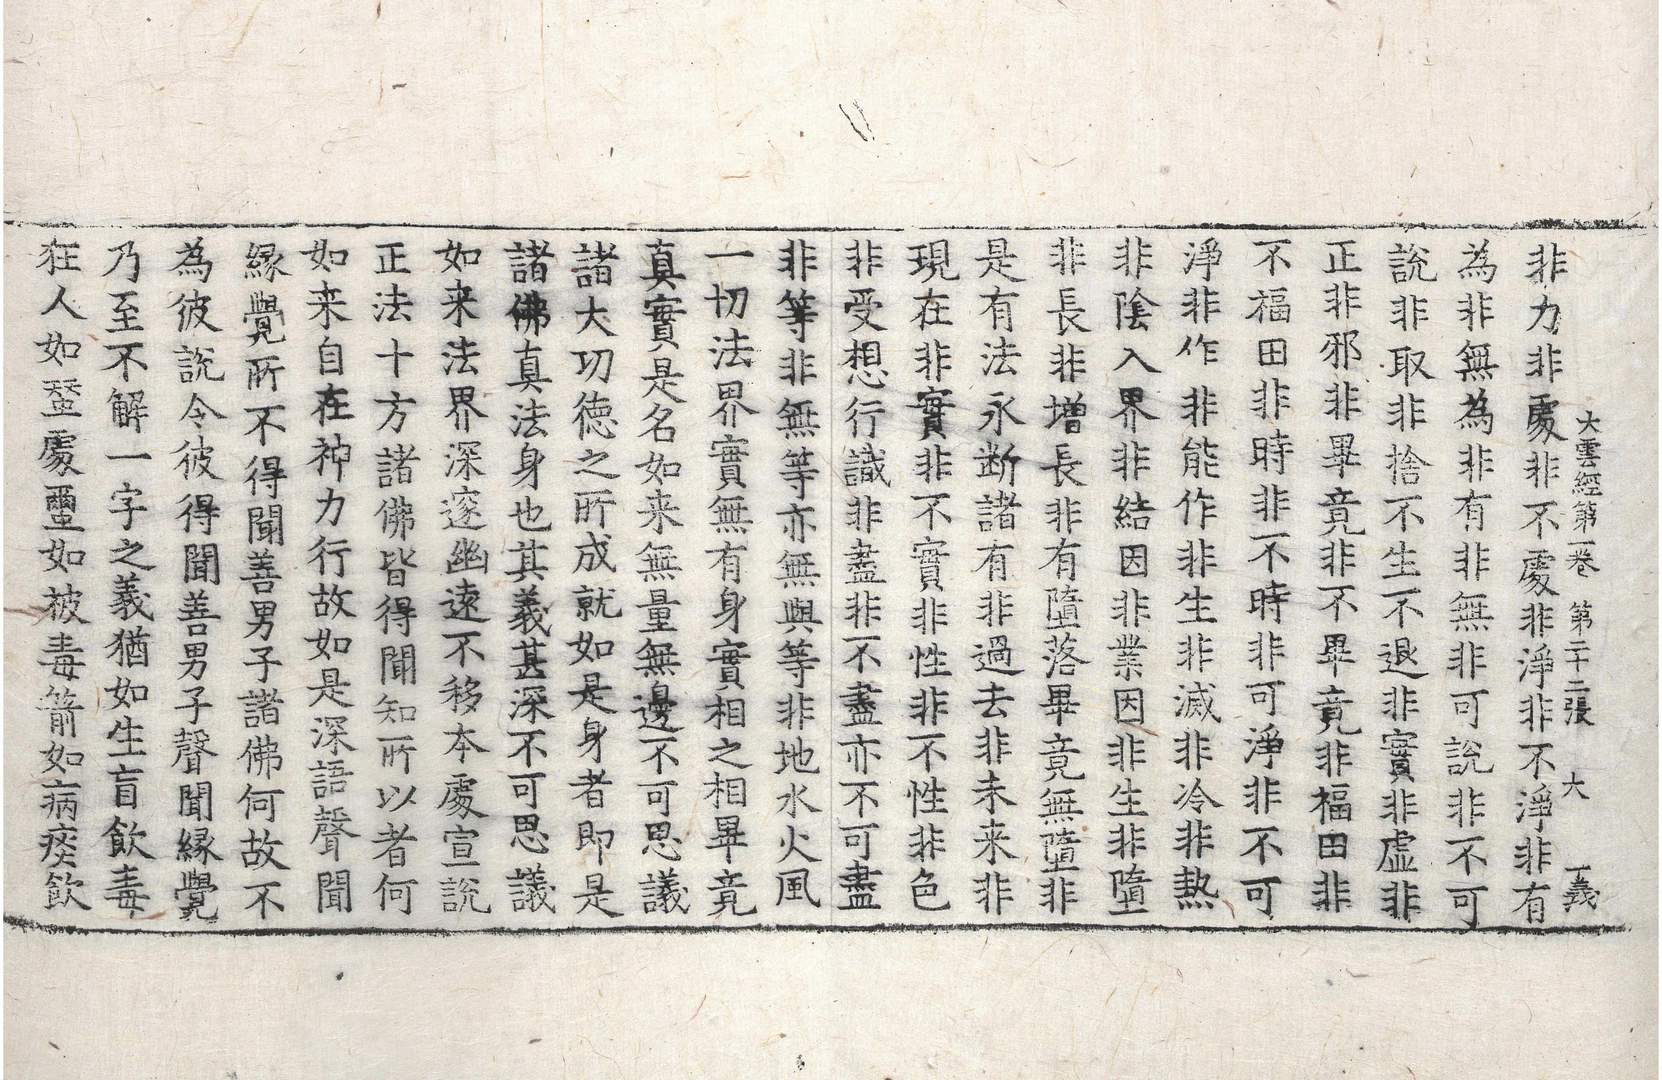 大雲經第一卷 第二十二張 大 一義
非力非處非不處非淨非不淨非有
為非無為非有非無非可說非不可
說非取非捨不生不退非實非虛非
正非邪非畢竟非不畢竟非福田非
不福田非時非不時非可淨非不可
淨非作非能作非生非滅非冷非熱
非陰入界非結因非業因非生非墮
非長非增長非有墮落畢竟無墮非
是有法永断諸有非過去非未来非
現在非實非不實非性非不性非色
非受想行識非盡非不盡亦不可盡
非等非無等亦無與等非地水火風
一切法界實無有身實相之相畢竟
真實是名如来無量無邊不可思議
諸大功徳之所成就如是身者即是
諸佛真法身也其義甚深不可思議
如来法界深邃幽遠不移本處宣說
正法十方諸佛皆得聞知所以者何
如来自在神力行故如是深語聲聞
縁覺所不得聞善男子諸佛何故不
為彼說令彼得聞善男子聲聞縁覺
乃至不解一字之義猶如生盲飲毒
狂人如蝅處壐如被毒箭如病痰飲